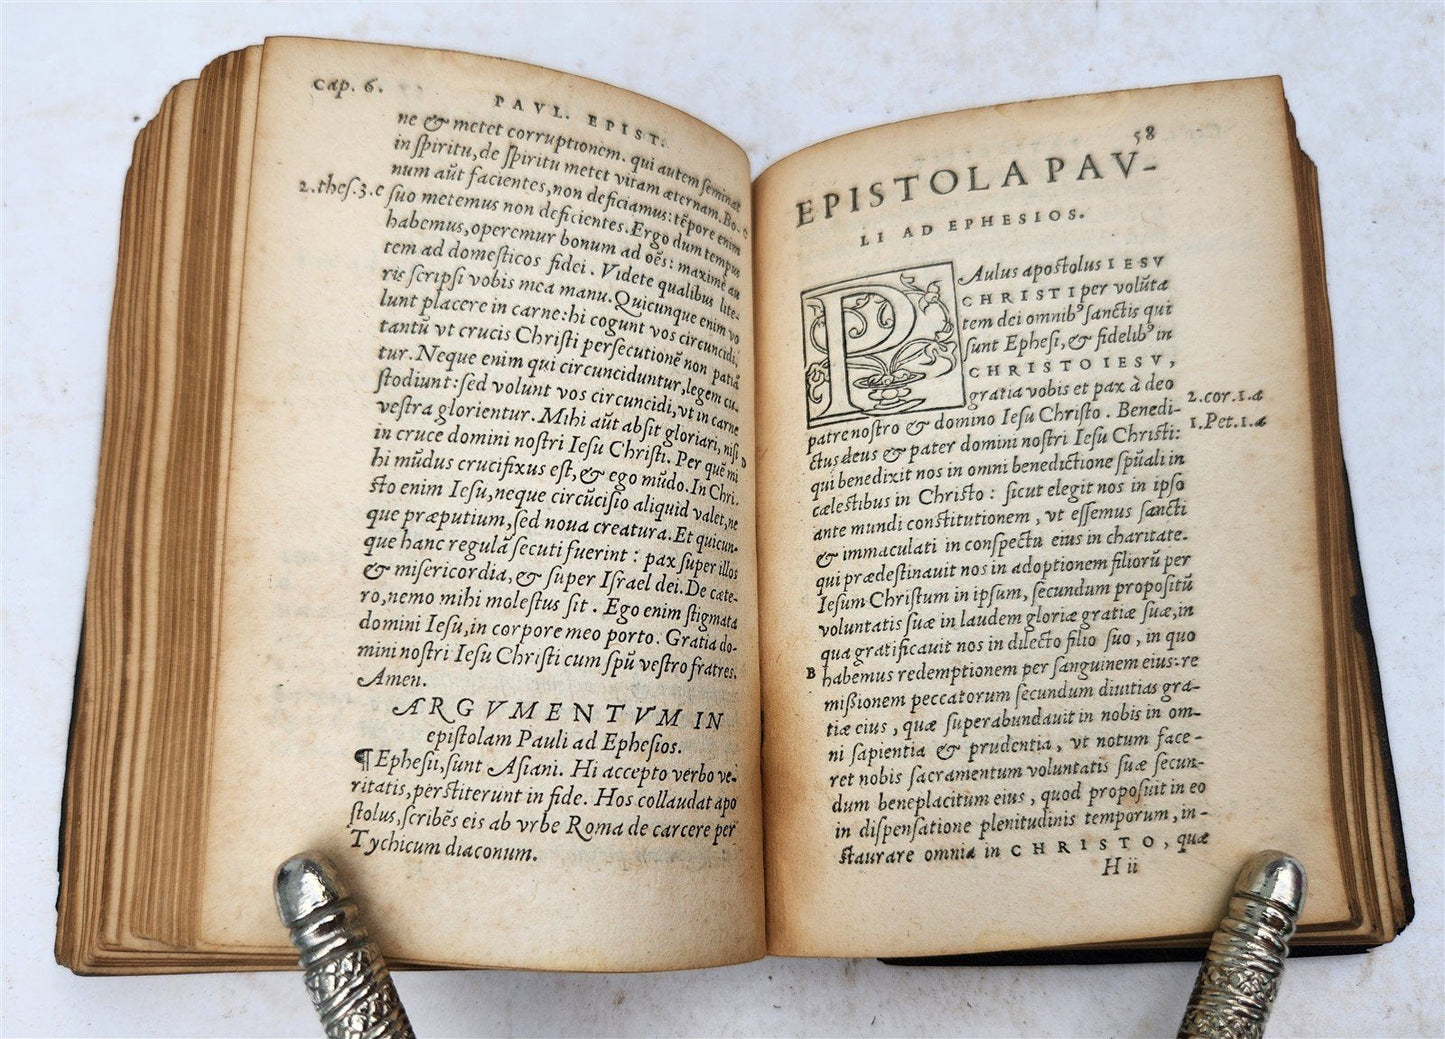 Cap. 6.
PAVL. EPIST.
ne & metet corruptionem. qui autem seminat
in spiritu, de spiritu metet vitam æternam. Bo-
num aũt facientes, non deficiamus: tẽpore enim
2. thes. 3. c
suo metemus non deficientes. Ergo dum tempus
habemus, operemur bonum ad oẽs: maxime au
tem ad domesticos fidei. Videte qualibus lite-
ris scripsi vobis mea manu. Quicunque enim vo
lunt placere in carne: hi cogunt vos circuncidi,
tantũ vt crucis Christi persecutionẽ non patiã
tur. Neque enim qui circunciduntur, legem cu-
stodiunt: sed volunt vos circuncidi, vt in carne
vestra glorientur. Mihi aũt absit gloriari, nisi
in cruce domini nostri Iesu Christi. Per quẽ mi
D
hi mũdus crucifixus est, & ego mũdo. In Chri-
sto enim Iesu, neque circũcisio aliquid valet, ne
que præputium, sed noua creatura. Et quicun-
que hanc regulã secuti fuerint: pax super illos
& misericordia, & super Israel dei. De cæte-
ro, nemo mihi molestus sit. Ego enim stigmata
domini Iesu, in corpore meo porto. Gratia do-
mini nostri Iesu Christi cum spũ vestro fratres.
Amen.
ARGVMENTVM IN
epistolam Pauli ad Ephesios.
¶ Ephesii, sunt Asiani. Hi accepto verbo ve-
ritatis, perstiterunt in fide. Hos collaudat apo
stolus, scribẽs eis ab vrbe Roma de carcere per
Tychicum diaconum.
58
EPISTOLA PAV-
LI AD EPHESIOS.
PAulus apostolus IESV
CHRISTI per volũta
tem dei omnibꝰ sanctis qui
sunt Ephesi, & fidelibꝰ in
CHRISTO IESV,
gratia vobis et pax à deo
2. cor. 1. a
patre nostro & domino Iesu Christo. Benedi-
1. Pet. 1. a
ctus deus & pater domini nostri Iesu Christi:
qui benedixit nos in omni benedictione spũali in
cælestibus in Christo: sicut elegit nos in ipso
ante mundi constitutionem, vt essemus sancti
& immaculati in conspectu eius in charitate.
qui prædestinauit nos in adoptionem filiorũ per
Iesum Christum in ipsum, secundum propositũ
voluntatis suæ in laudem gloriæ gratiæ suæ, in
qua gratificauit nos in dilecto filio suo, in quo
B
habemus redemptionem per sanguinem eius: re
missionem peccatorum secundum diuitias gra-
tiæ eius, quæ superabundauit in nobis in om-
ni sapientia & prudentia, vt notum face-
ret nobis sacramentum voluntatis suæ secun-
dum beneplacitum eius, quod proposuit in eo
in dispensatione plenitudinis temporum, in-
staurare omnia in CHRISTO, quæ
H ii